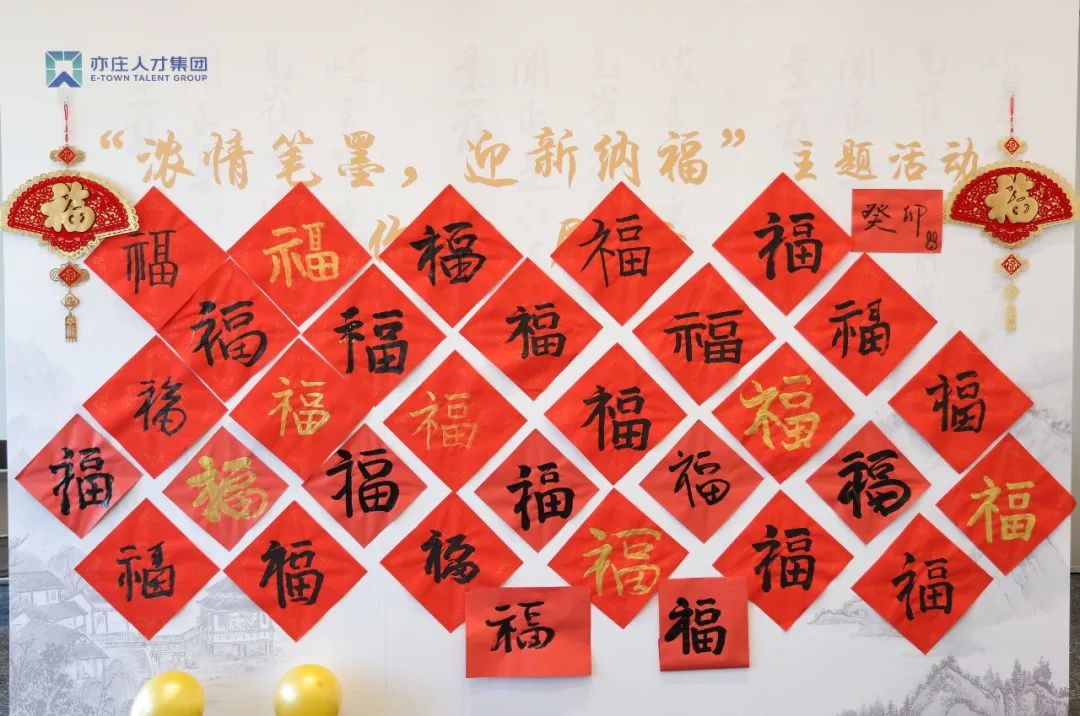 亦庄人才集团
E-TOWN TALENT GROUP
“浓情笔墨，迎新纳福”主题活动
福
福
福 福 福 福 福
癸卯
福 福 福 福 福
福 福 福 福 福 福
福 福 福 福 福 福 福
福 福 福 福 福 福
福 福